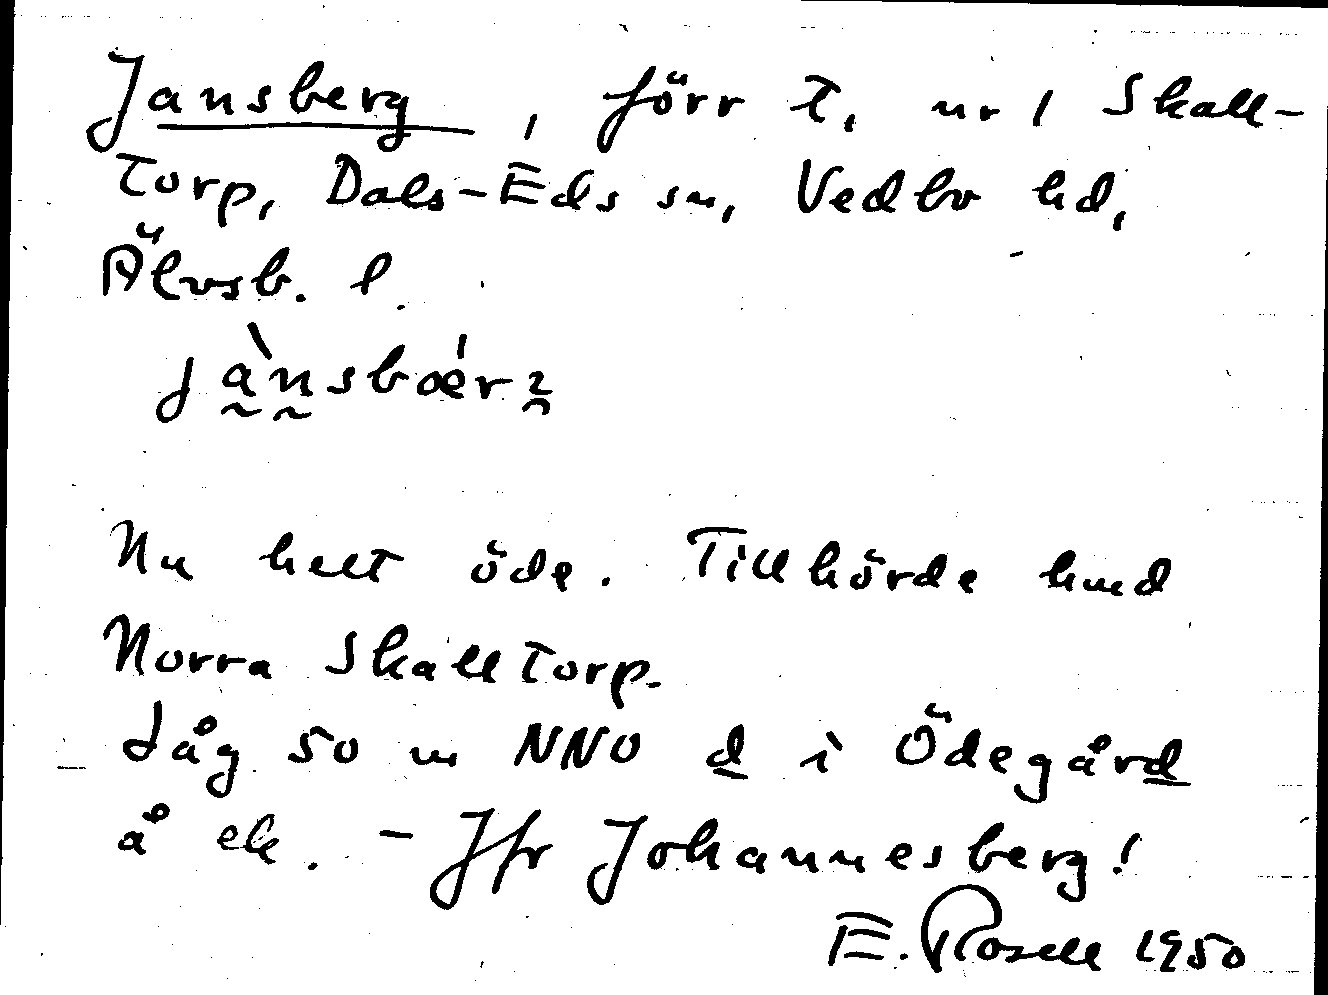 Jansberg, förr t. nr 1 Skall-
torp, Dals-Eds sn, Vedbo hd,
Älvsb. l.
jànsbǽrz
Nu helt öde. Tillhörde hmd
Norra Skalltorp.
Låg 50 m NNO d i Ödegård
å ek. - Jfr Johannesberg!
E. Rosell 1950